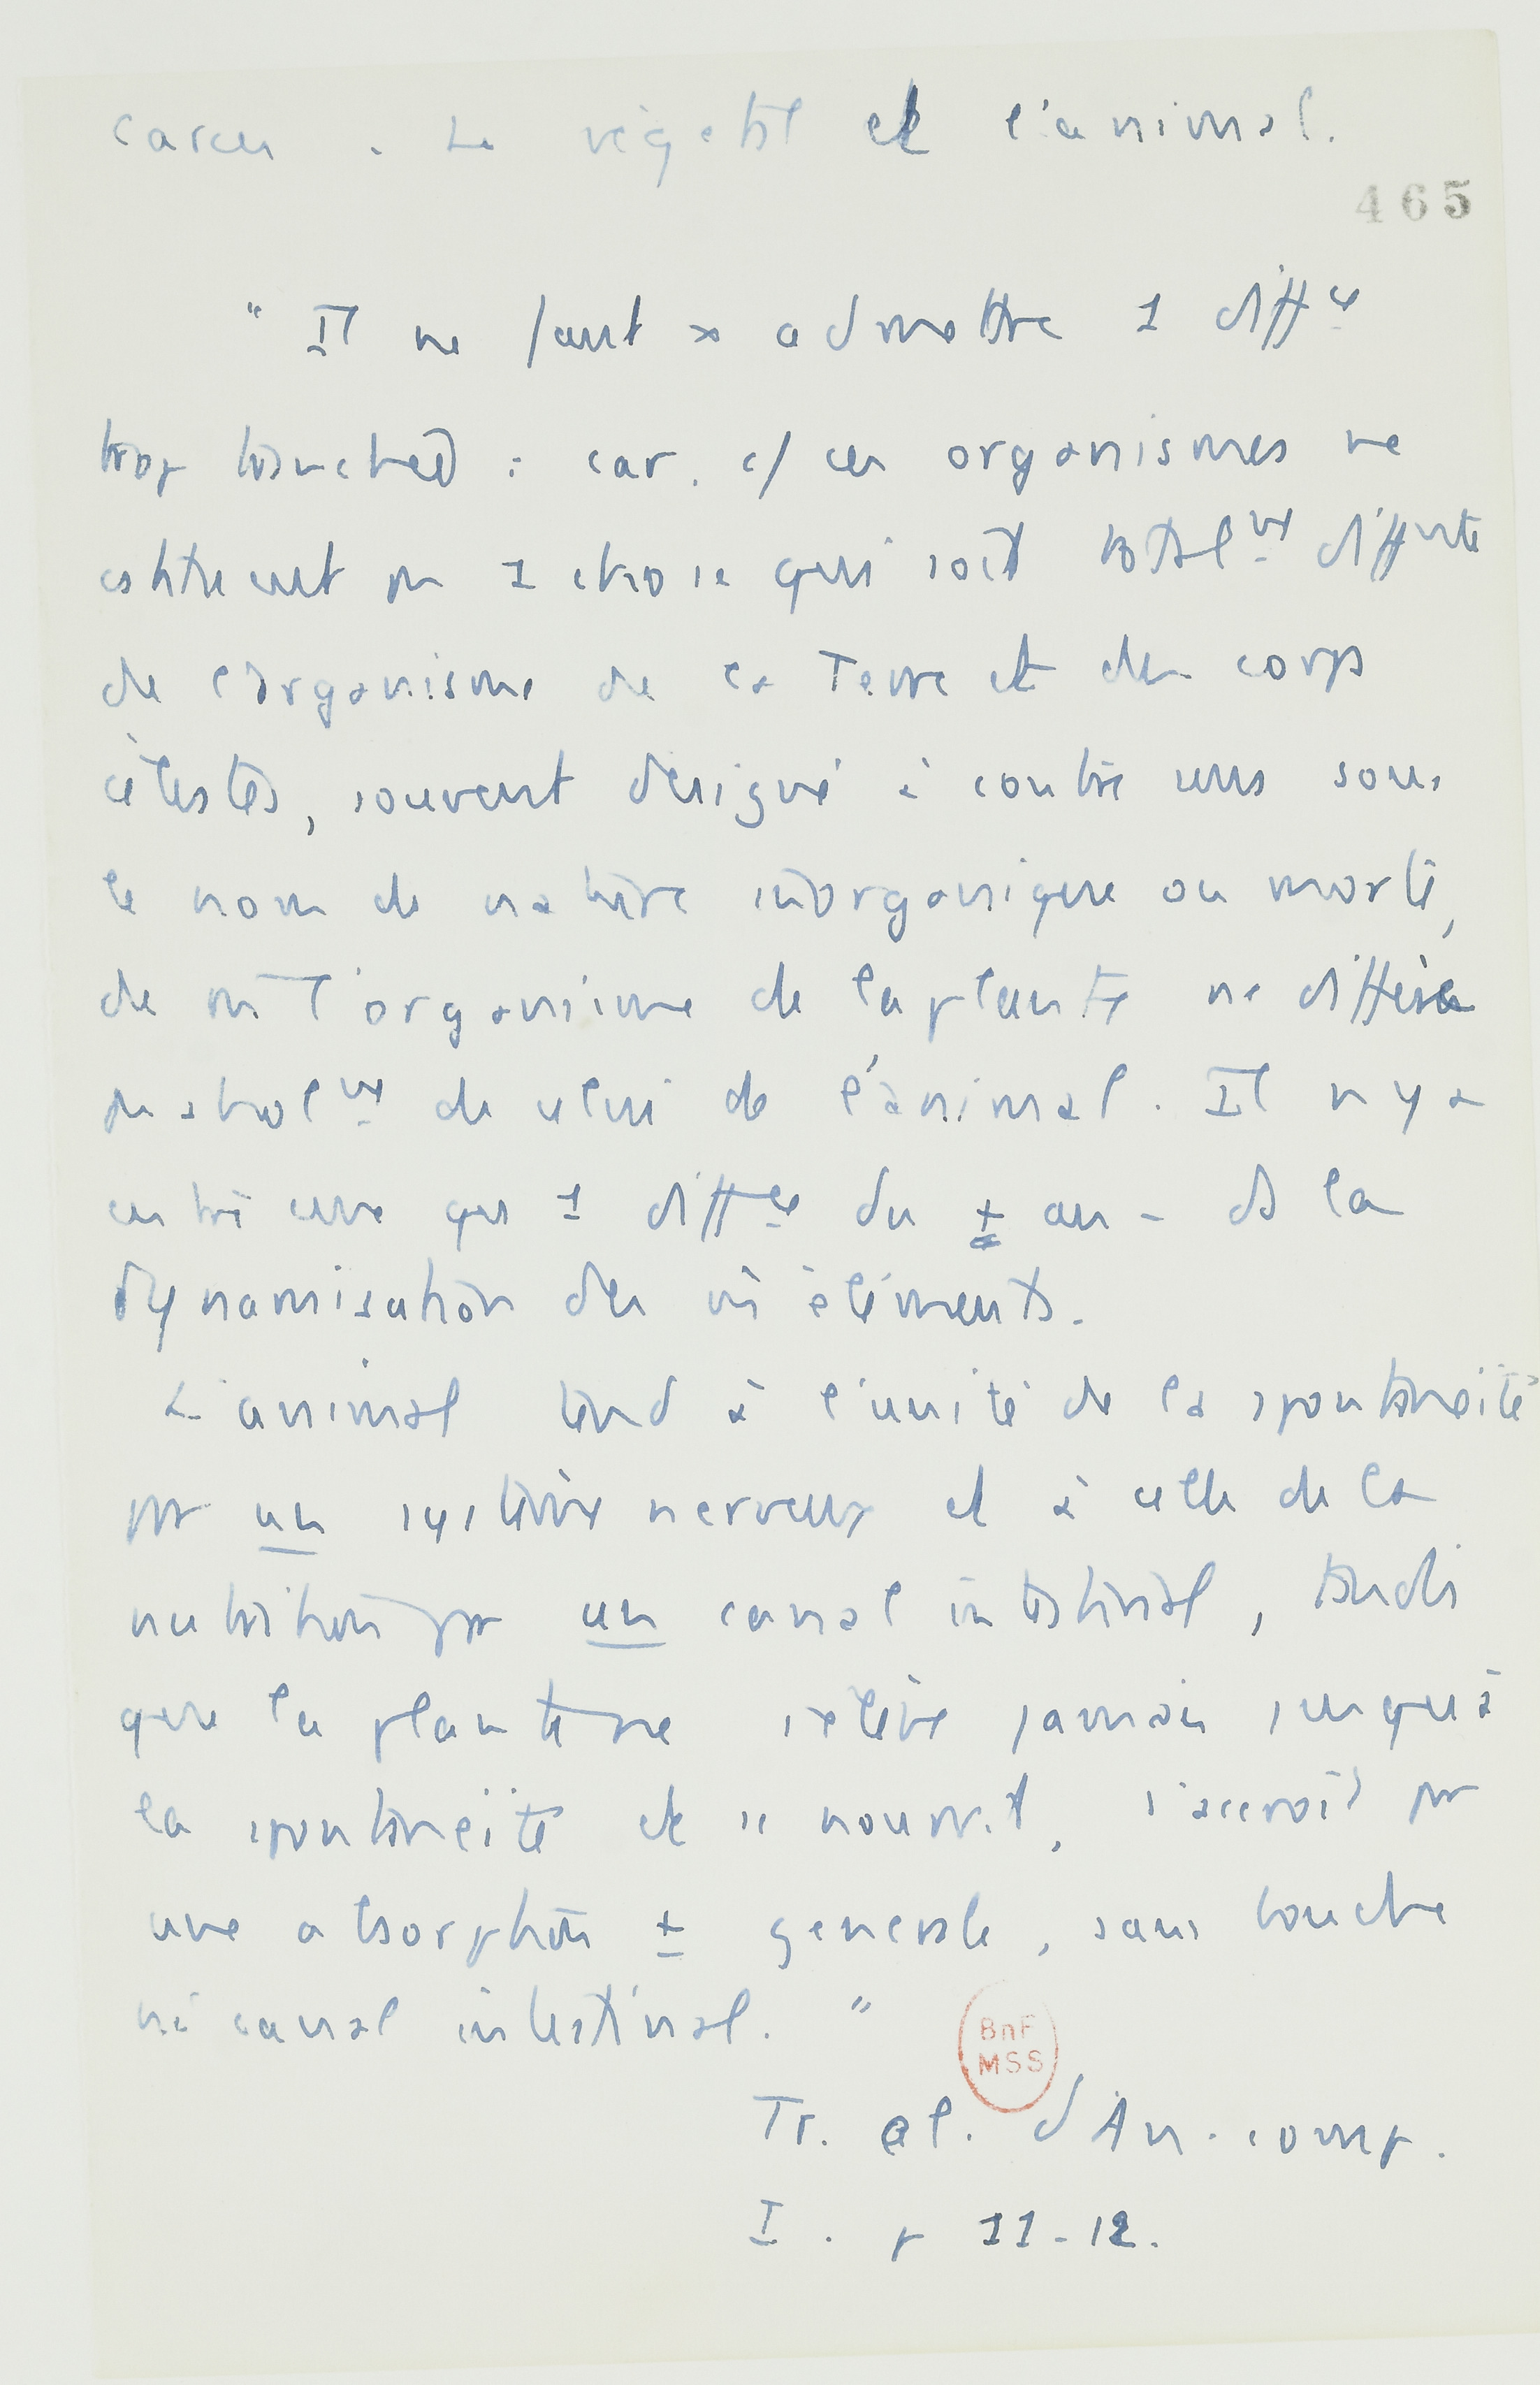 Carus. Le végétal et l'animal.
465
" Il ne faut x admettre 1 diffce
trop tranchée : car. c/ ces organismes ne
cstituent pas 1 chose qui soit totalmt différte
de l'organisme de la Terre et des corps
célestes, souvent désigné à contre sens sous
le nom de nature inorganique ou morte,
de m l'organisme de la plante ne diffère
pas absolmt de celui de l'animal. Il n'y a
entre eux que 1 diffce du + au - ds la
dynamisation des m éléments.
L'animal tend à l'unité de la spontanéité
par un système nerveux et à celle de la
nutrition par un canal intestinal, tandis
que la plante ne s'élève jamais jusqu'à
la spontanéité et se nourrit, s'accroît par
une absorption ± générale, sans bouche
ni canal intestinal. "
BnF
MSS
Tr. el. d'An. comp.
I. p 11-12.